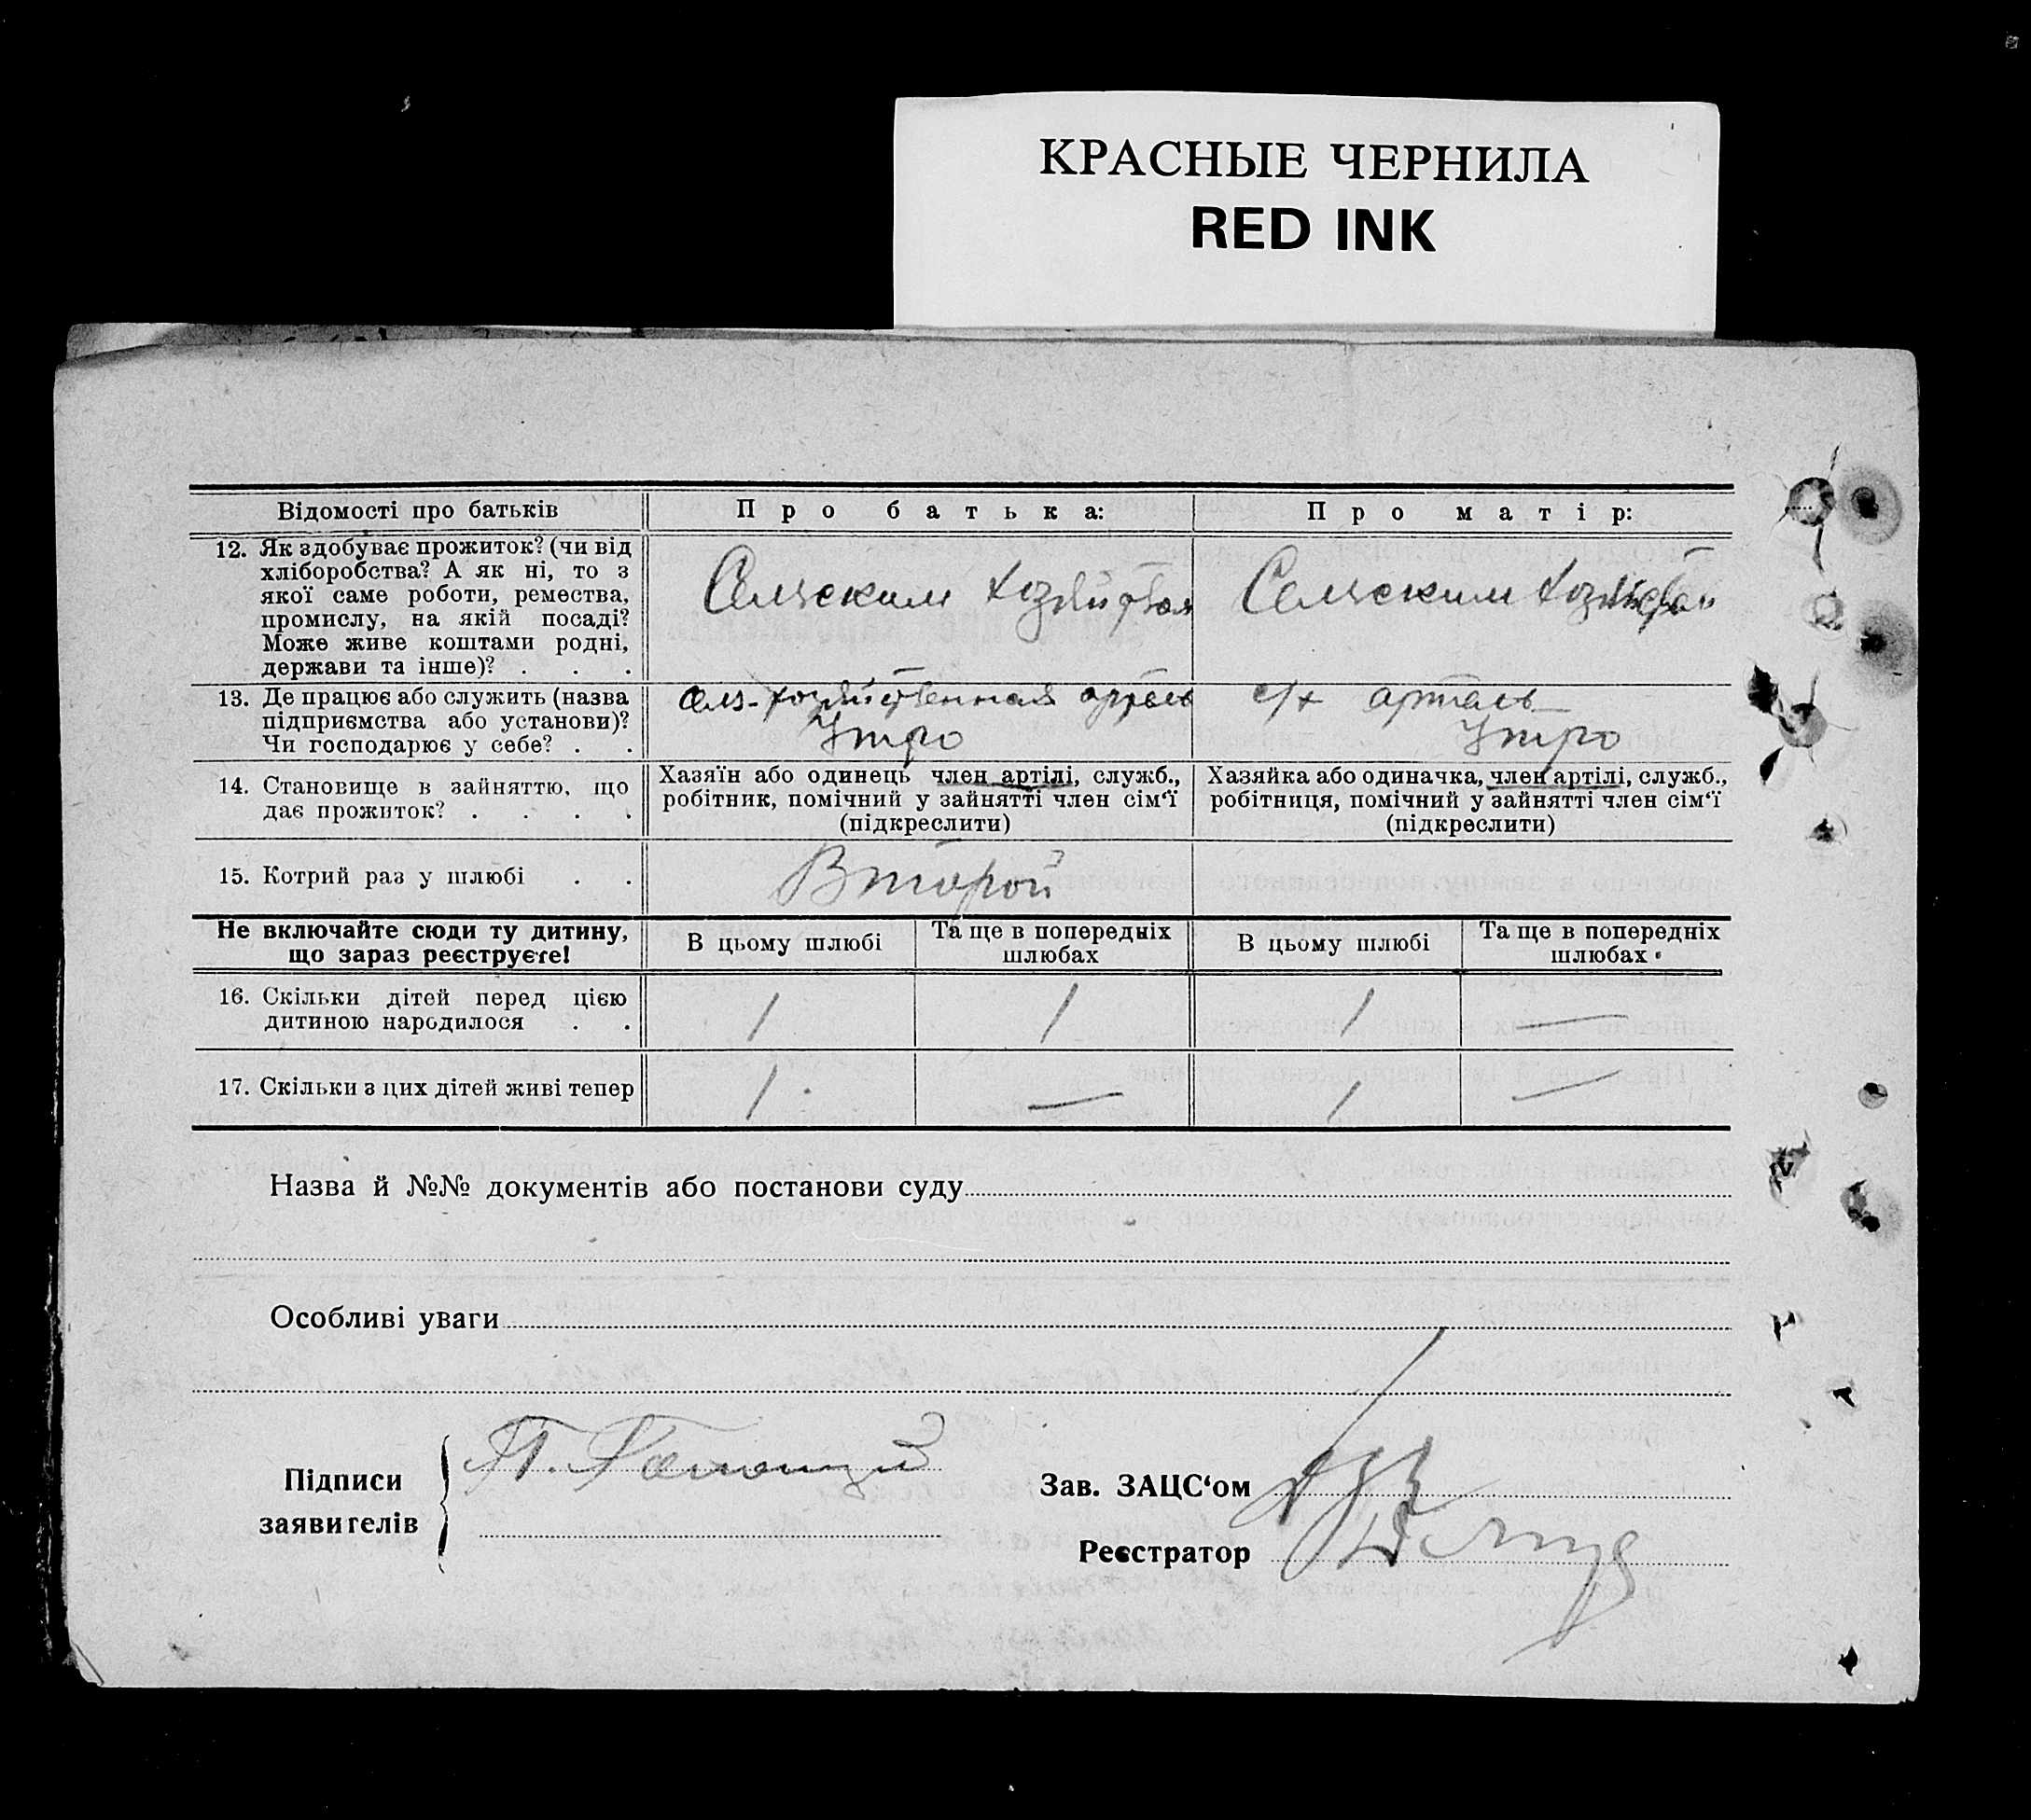 КРАСНЫЕ ЧЕРНИЛА
RED INK
Відомості про батьків
Про батька:
Про матір:
12. Як здобуває прожиток? (чи від
хліборобства? А як ні, то з
якої саме роботи, ремества,
промислу, на якій посаді?
Може живе коштами родні,
держави та інше)? . . .
Сельским хозяйством
Сельским хозяйством
13. Де працює або служить (назва
підприємства або установи)?
Чи господарює у себе? . .
сель-хозяйственная артель
Утро
с/х артель
Утро
14. Становище в зайняттю, що
дає прожиток? . . . .
Хазяїн або одинець член артілі, служб.,
робітник, помічний у зайнятті член сім‘ї
(підкреслити)
Хазяйка або одиначка, член артілі, служб.,
робітниця, помічний у зайнятті член сім‘ї
(підкреслити)
15. Котрий раз у шлюбі . .
Второй
Не включайте сюди ту дитину,
що зараз реєструєте!
В цьому шлюбі
Та ще в попередніх
шлюбах
В цьому шлюбі
Та ще в попередніх
шлюбах
16. Скільки дітей перед цією
дитиною народилося . .
1
1
1
—
17. Скільки з цих дітей живі тепер
1
—
1
—
Назва й №№ документів або постанови суду
Особливі уваги
Підписи
заявителів
Зав. ЗАЦС‘ом
Реєстратор